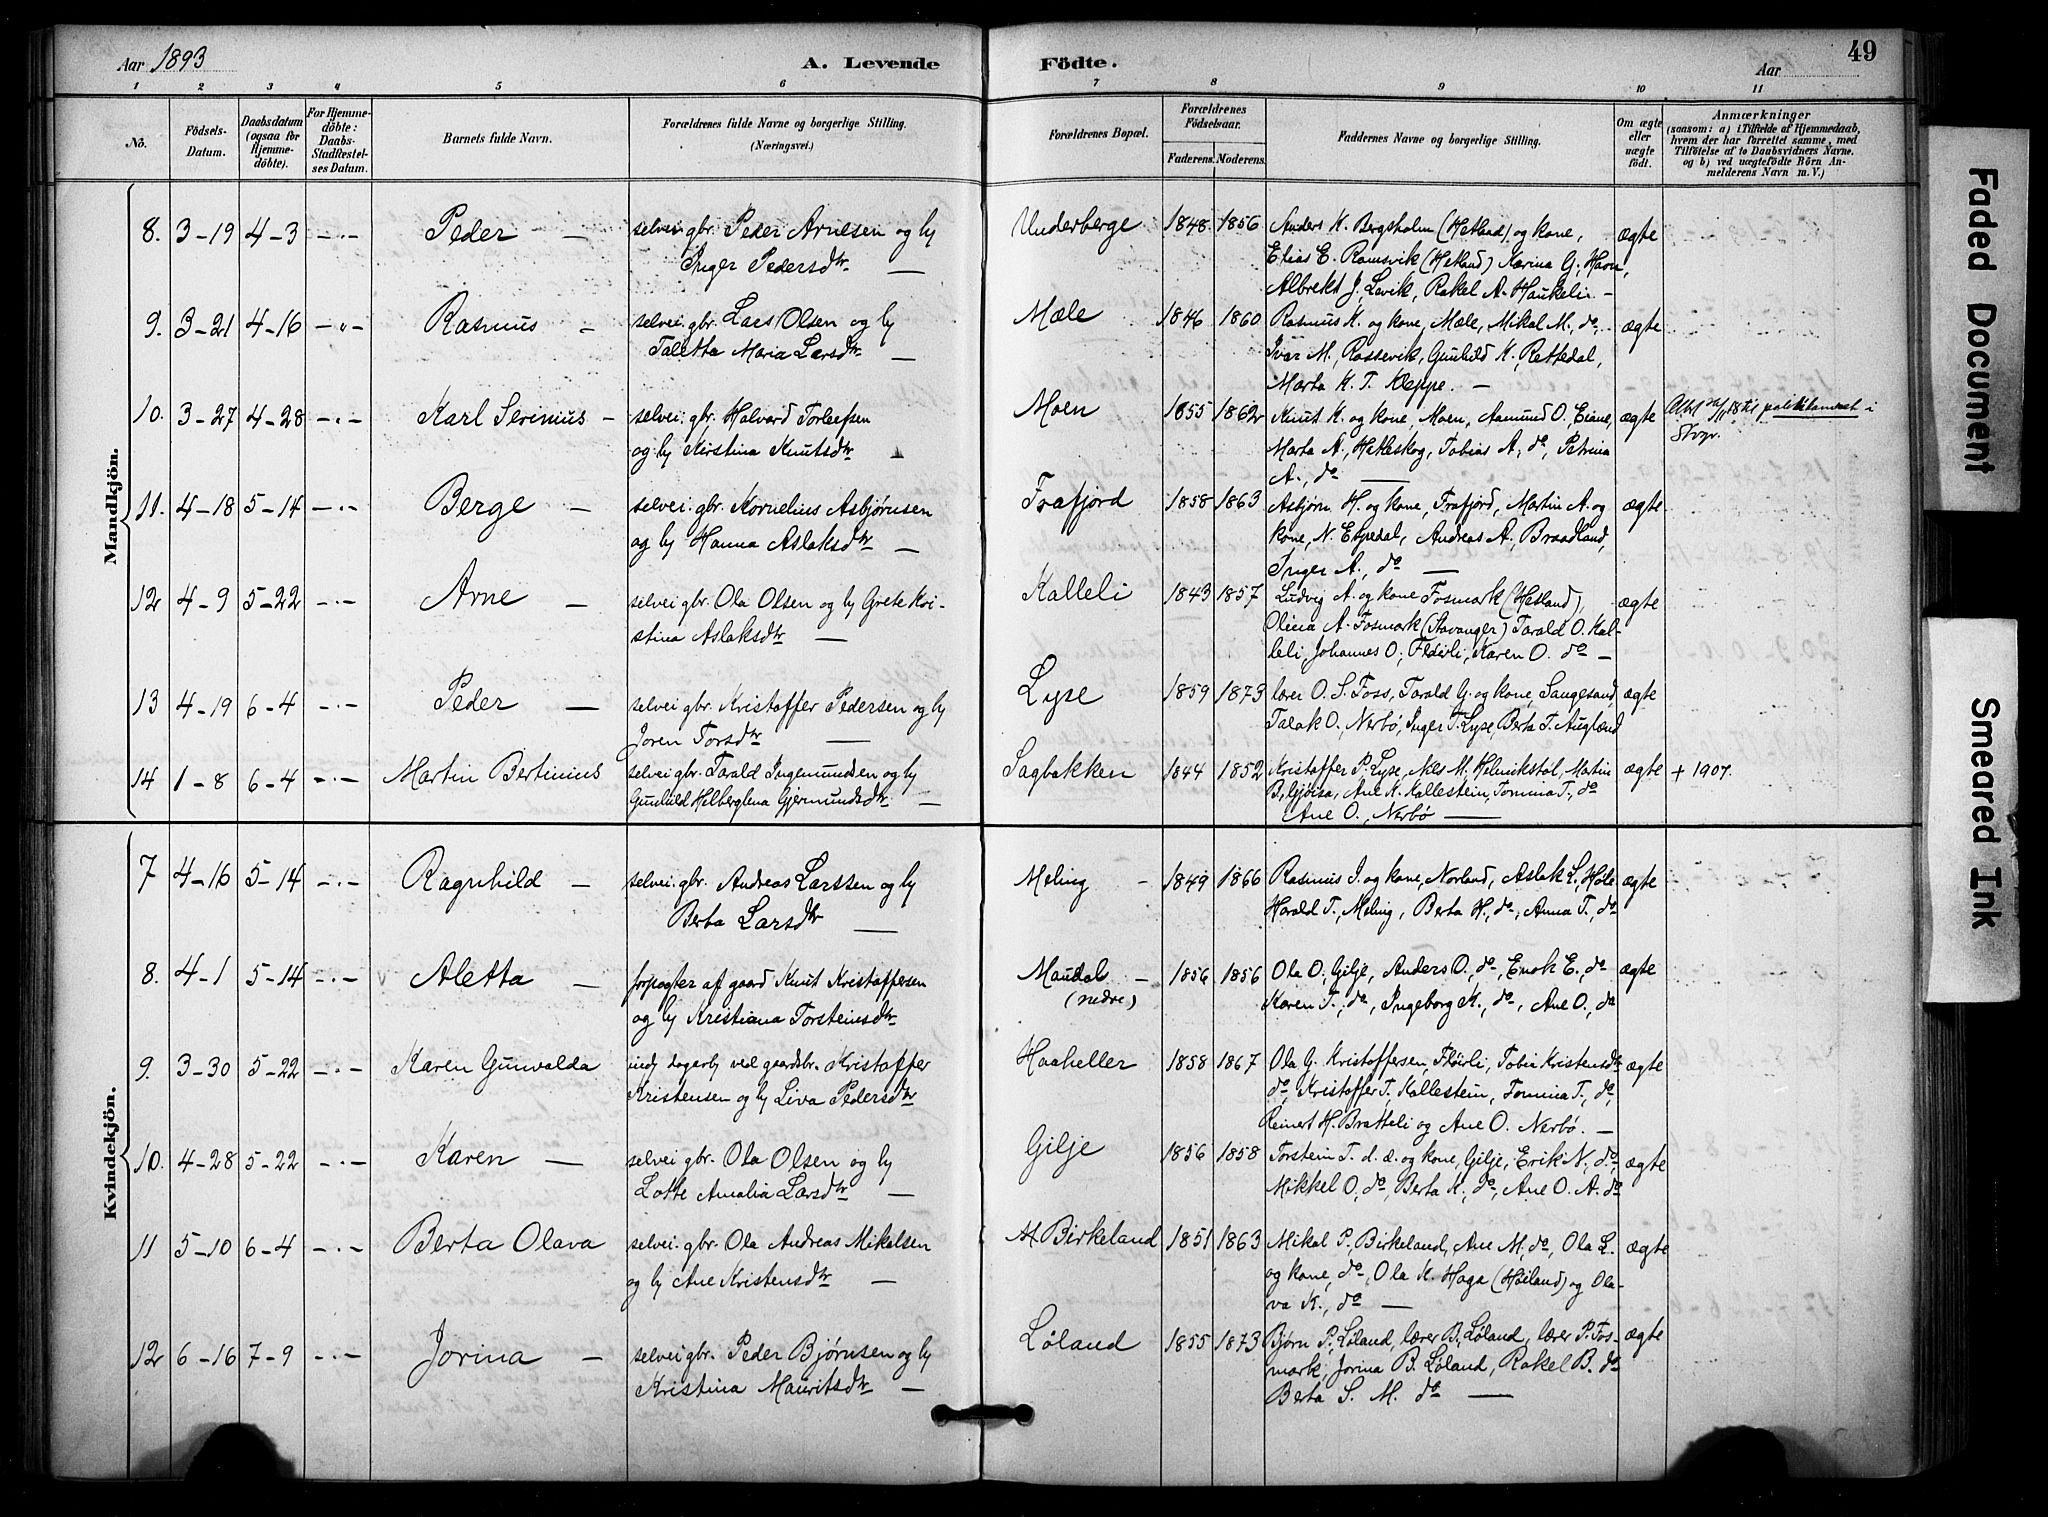 Aar 1893
A. Levende
Fødte.
Aar
49
1 2 3 4 5 6 7 8 9 10 11
No.
Födsels-
Datum.
Daabsdatum
(ogsaa for
Hjemme-
döbte).
For Hjemme-
döbte:
Daabs-
Stadfæstel-
ses Datum.
Barnets fulde Navn.
Forældrenes fulde Navne og borgerlige Stilling.
(Næringsvei.)
Forældrenes Bopæl.
Forældrenes
Födselsaar.
Faderens. Moderens.
Faddernes Navne og borgerlige Stilling.
Om ægte
eller
uægte
født.
Anmærkninger
(saasom: a) i Tilfælde af Hjemmedaab,
hvem der har forrettet samme, med
Tilföielse af to Daabsvidners Navne.
og b) ved uægtefödte Börn An-
melderens Navn m. V.)
Mandkjön.
8. 3-19 4-3 Peder selvei. gbr. Peder Arnesen og hu Underberge 1848 1856 Anders K. Bergsholm (Hetland) og kone, ægte
Inger Pedersdtr. Elias E. Ramsvik (Hetland) Karina G. Havn,
Albrekt J. Lavik, Rakel A. Haukeli
9. 3-21 4-16 Rasmus selvei. gbr. Lars Olsen og hu Mæle 1846 1860 Rasmus K. og kone, Mæle, Mikal M., do, ægte
Taletta Maria Larsdtr Ivar M., Rossevik, Gunhild K. Rettedal,
Marta K. T. Kleppe.
10. 3-27 4-28 Karl Serinius selvei. gbr. Halvard Torleifsen Moen 1855 1862 Knut K. og kone, Moen, Aamund O., Eiane, ægte politikamret i
og hu Kirstina Knutsdtr Marta A., Helleskog, Tobias A., do, Petrina Stvgr.
A., do
11. 4-18 5-14 Berge selvei. gbr. Kornelius Asbjørnsen Frafjord 1858 1863 Asbjørn H. og kone, Frafjord, Martin A. og ægte
og hu Hanna Aslaksdtr kone, N. Espedal, Andreas A., Braadland,
Inger A., do
12 4-9 5-22 Arne selvei gbr. Ola Olsen og hu Grete Kri- Kalleli 1843 1857 Ludvig A. og kone Fosmark (Hetland), ægte
stina Aslaksdtr Olina A. Fosmark (Stavanger) Tarald O. Kal-
leli, Johannes O., Fløirli, Karen O. do
13 4-19 6-4 Peder selvei gbr. Kristoffer Pedersen og hu Lyse 1859 1873 lærer O. S. Foss, Tarald G. og kone, Sangesand, ægte
Joren Torsdtr Talak O. Nerbø, Inger T. Lyse, Berta T. Auglænd
14 1-8 6-4 Martin Bertinius selvei gbr. Tarald Ingemundsen og hu Sagbakken 1844 1852 Kristoffer P. Lyse, Nils M., Helmikstøl, Martin ægte + 1907.
Gunhild Helberglena Gjermundsdtr B. Gjøisa, Ane K. Kallestein, Tomina T., do
Ane O., Nerbø
Kvindekjön.
7 4-16 5-14 Ragnhild selvei. gbr. Andreas Larssen og hu Meling 1849 1866 Rasmus J. og kone, Norland, Aslak L., Høle ægte
Berta Larsdtr Harald T., Meling, Berta H., do, Anna T., do
8. 4-1 5-14 Aletta forpagter af gaard Knut Kristoffersen Maudal 1856 1856 Ola O., Gilje, Anders O., do, Enok E., do ægte
og hu Kristiana Torsteinsdtr (nedre) Karen T., do, Ingeborg K., do, Ane O., do
9. 3-30 5-22 Karen Gunvalda indh dagarb ved gaardsbr. Kristoffer Haaheller 1858 1867 Ola G. Kristoffersen, Fløirli, Tobia Kristensdtr ægte
Kristensen og hu Liva Pedersdtr do, Kristoffer T., Kallestein, Tomina T., do,
Reinert H. Bratteli og Ane O. Nerbø.
10. 4-28 5-22 Karen selvei gbr. Ola Olsen og hu Gilje 1856 1858 Torstein T. d. æ. og kone, Gilje, Erik N., do, ægte
Lotte Amalia Larsdtr Mikkel O., do, Berta K., do, Ane O. A. do
11 5-10 6-4 Berta Olava selvei gbr. Ola Andreas Mikalsen M Birkeland 1851 1863 Mikal P., Birkeland, Ane M., do, Ola L. ægte
og hu Ane Kristensdtr og kone, do, Ola K. Haga (Høiland) og Ola-
va K., do
12 6-16 7-9 Jorina selvei gbr. Peder Bjørnsen og hu Løland 1855 1873 Bjørn P. Løland, lærer B. Løland, lærer P. Fos- ægte
Kristina Mauritsdtr mark, Jorina B. Løland, Rakel B. do
Berta S. M. do
Faded Document
Smeared Ink